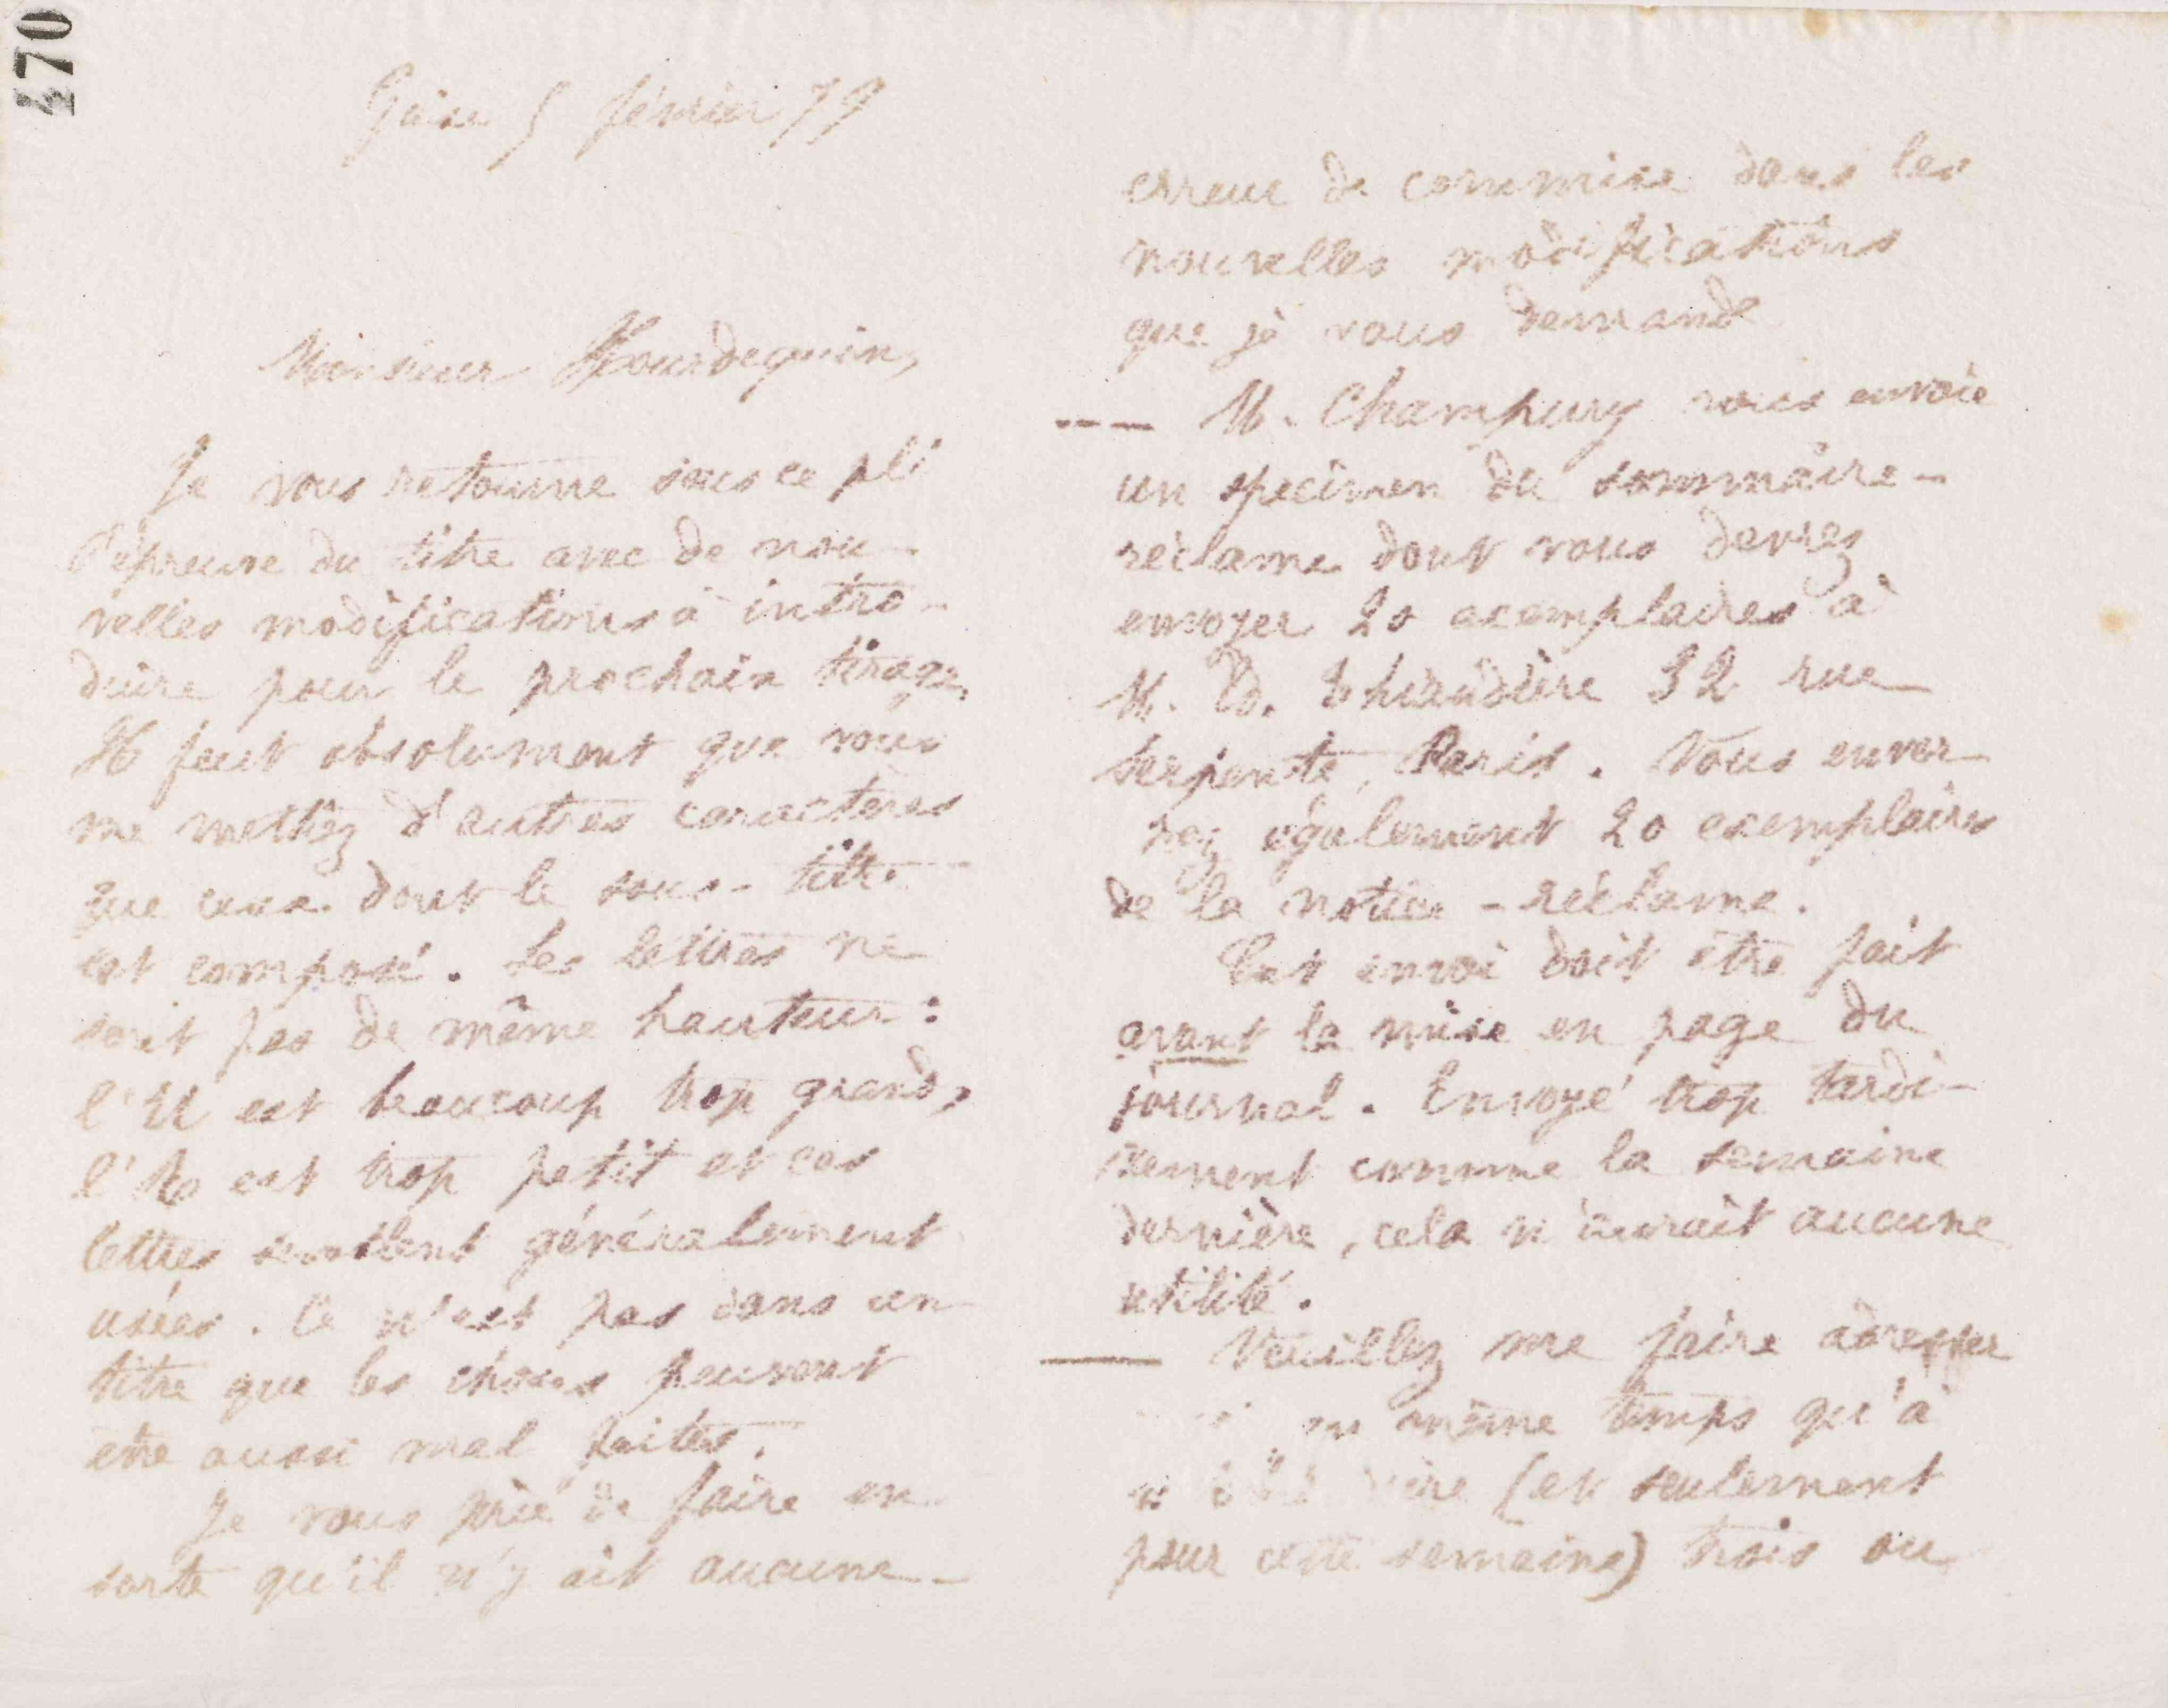 470
Guise 5 février 79
Monsieur Hourdequin,
Je vous retourne sous ce pli
l'épreuve du titre avec de nou-
velles modifications à intro-
duire pour le prochain tirage.
Il faut absolument que vous
me mettiez d'autres caractères
que ceux dont le sous-titre
est composé. Les lettres ne
sont pas de même hauteur :
l'U est beaucoup trop grand,
l'R est trop petit et ces
lettres semblent généralement
usées. Ce n'est pas dans un
titre que les choses peuvent
etre aussi mal faites.
Je vous prie de faire en
sorte qu'il n'y ait aucune
erreur de commise dans les
nouvelles modifications
que je vous demande
--- M. Champury vous envoie
un specimen du sommaire-
réclame dont vous devrez
envoyer 20 exemplaires à
M. Ed. 32 rue
Serpente, Paris. Vous enver-
rez également 20 exemplaires
de la notice-réclame.
Cet envoi doit être fait
avant la mise en page du
journal. Envoyé trop tardi-
vement comme la semaine
dernière, cela n'aurait aucune
utilité.
— Veuillez me faire adresser
en même temps qu'à
(et seulement
pour cette semaine) trois ou